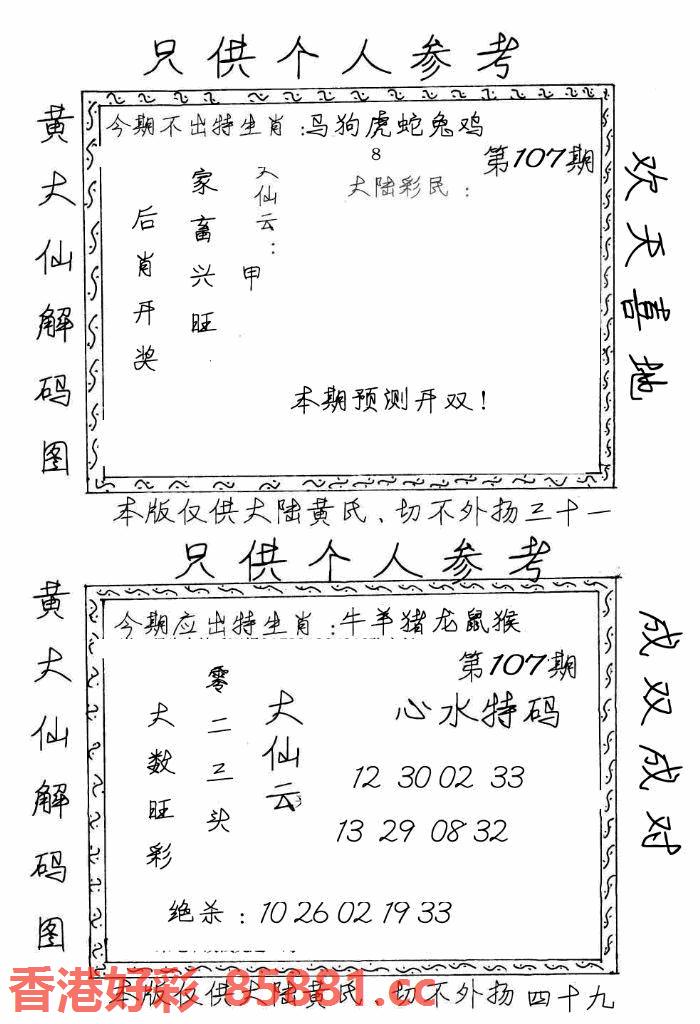 只供个人参考
黄大仙解码图
今期不出特生肖:马狗虎蛇兔鸡
8
第107期
大陆彩民:
大仙云:
甲
家畜兴旺
后肖开奖
本期预测开双!
欢天喜地
本版仅供大陆黄氏、切不外扬三十一
只供个人参考
黄大仙解码图
今期应出特生肖:牛羊猪龙鼠猴
第107期
大仙云
零二三头
大数旺彩
心水特码
12 30 02 33
13 29 08 32
绝杀:10 26 02 19 33
成双成对
香港好彩 85881.cc
本版仅供大陆黄氏、切不外扬四十九